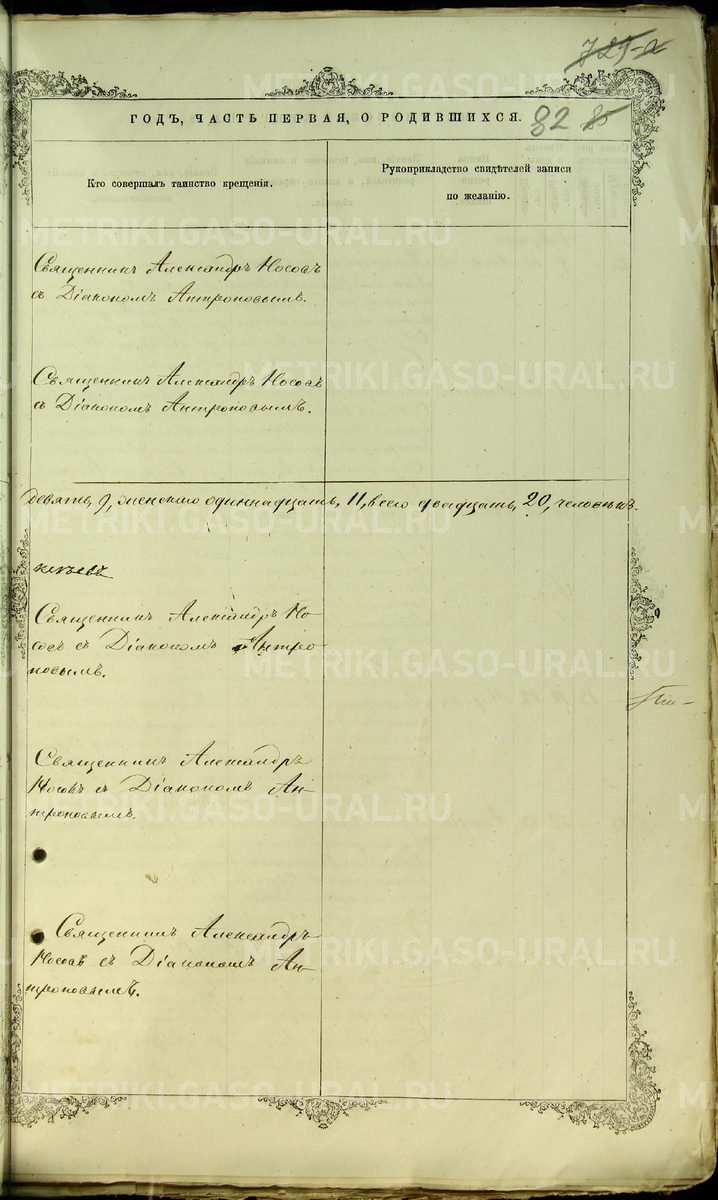 729-а
ГОДЪ, ЧАСТЬ ПЕРВАЯ, О РОДИВШИХСЯ.
82
Кто совершалъ таинство крещенія.
Рукоприкладство свидѣтелей записи
по желанію.
Священникъ Александръ Носовъ
съ Діакономъ Антроповымъ.
Священникъ Александръ Носовъ
съ Діакономъ Антроповымъ.
девять, 9, женскаго одиннадцать, 11, всего двадцать, 20, человѣкъ.
Священникъ Александръ Но-
совъ съ Діакономъ Антро
повымъ.
Священникъ Александръ
Носовъ съ Діакономъ Ан-
троповымъ.
Священникъ Александръ
Носовъ съ Діакономъ Ан-
троповымъ.
METRIKI.GASO-URAL.RU